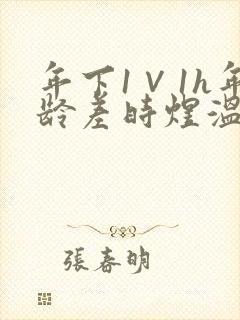 年下1∨1h年
龄差时煌温
張春明